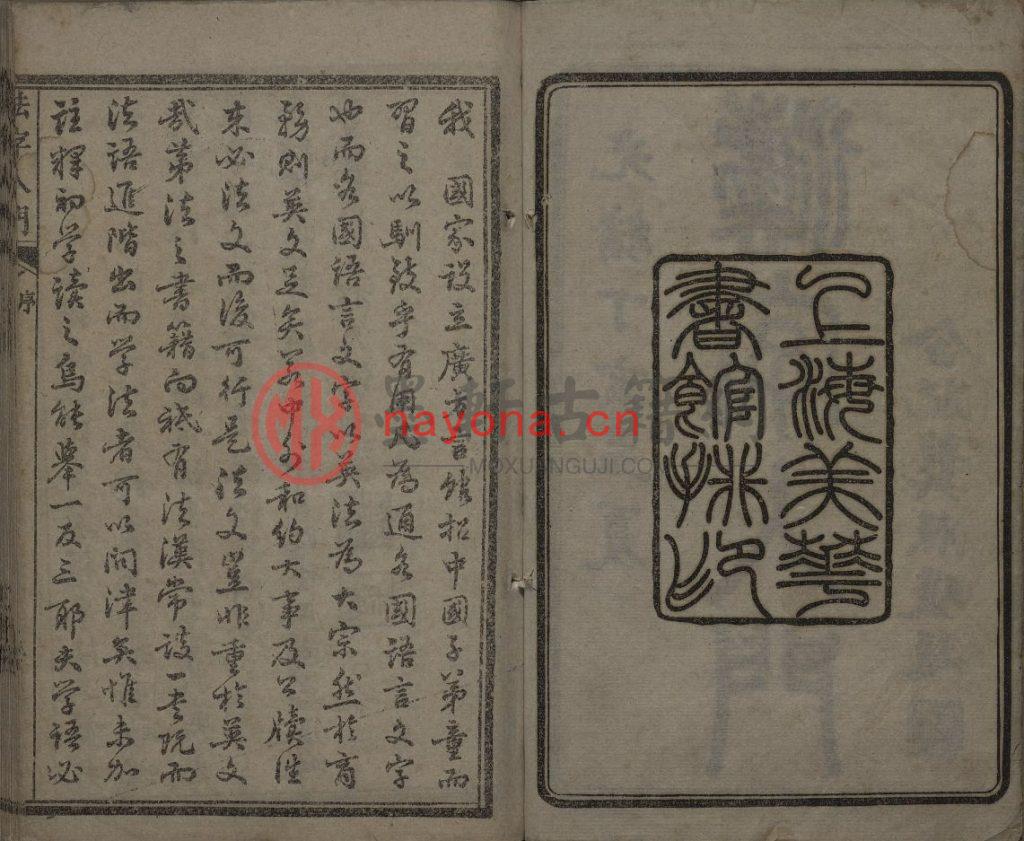 上海美華
書館摹印
我 國家設立廣方言館招中國子弟童而
習之以馴致乎有用凡為通各國語言文字
也而各國語言文字以英法為大宗然於商
務則英文足矣若中外和約大事及公牘往
來必法文而後可行是法文豈非重於英文
哉第法之書籍向祗有法漢常談一書既而
法語進階出而學法者可以問津矣惟未加
註釋初學讀之烏能舉一反三耶夫學語必
法字入門
序
nayona.cn
MOXUANGUJI.COM